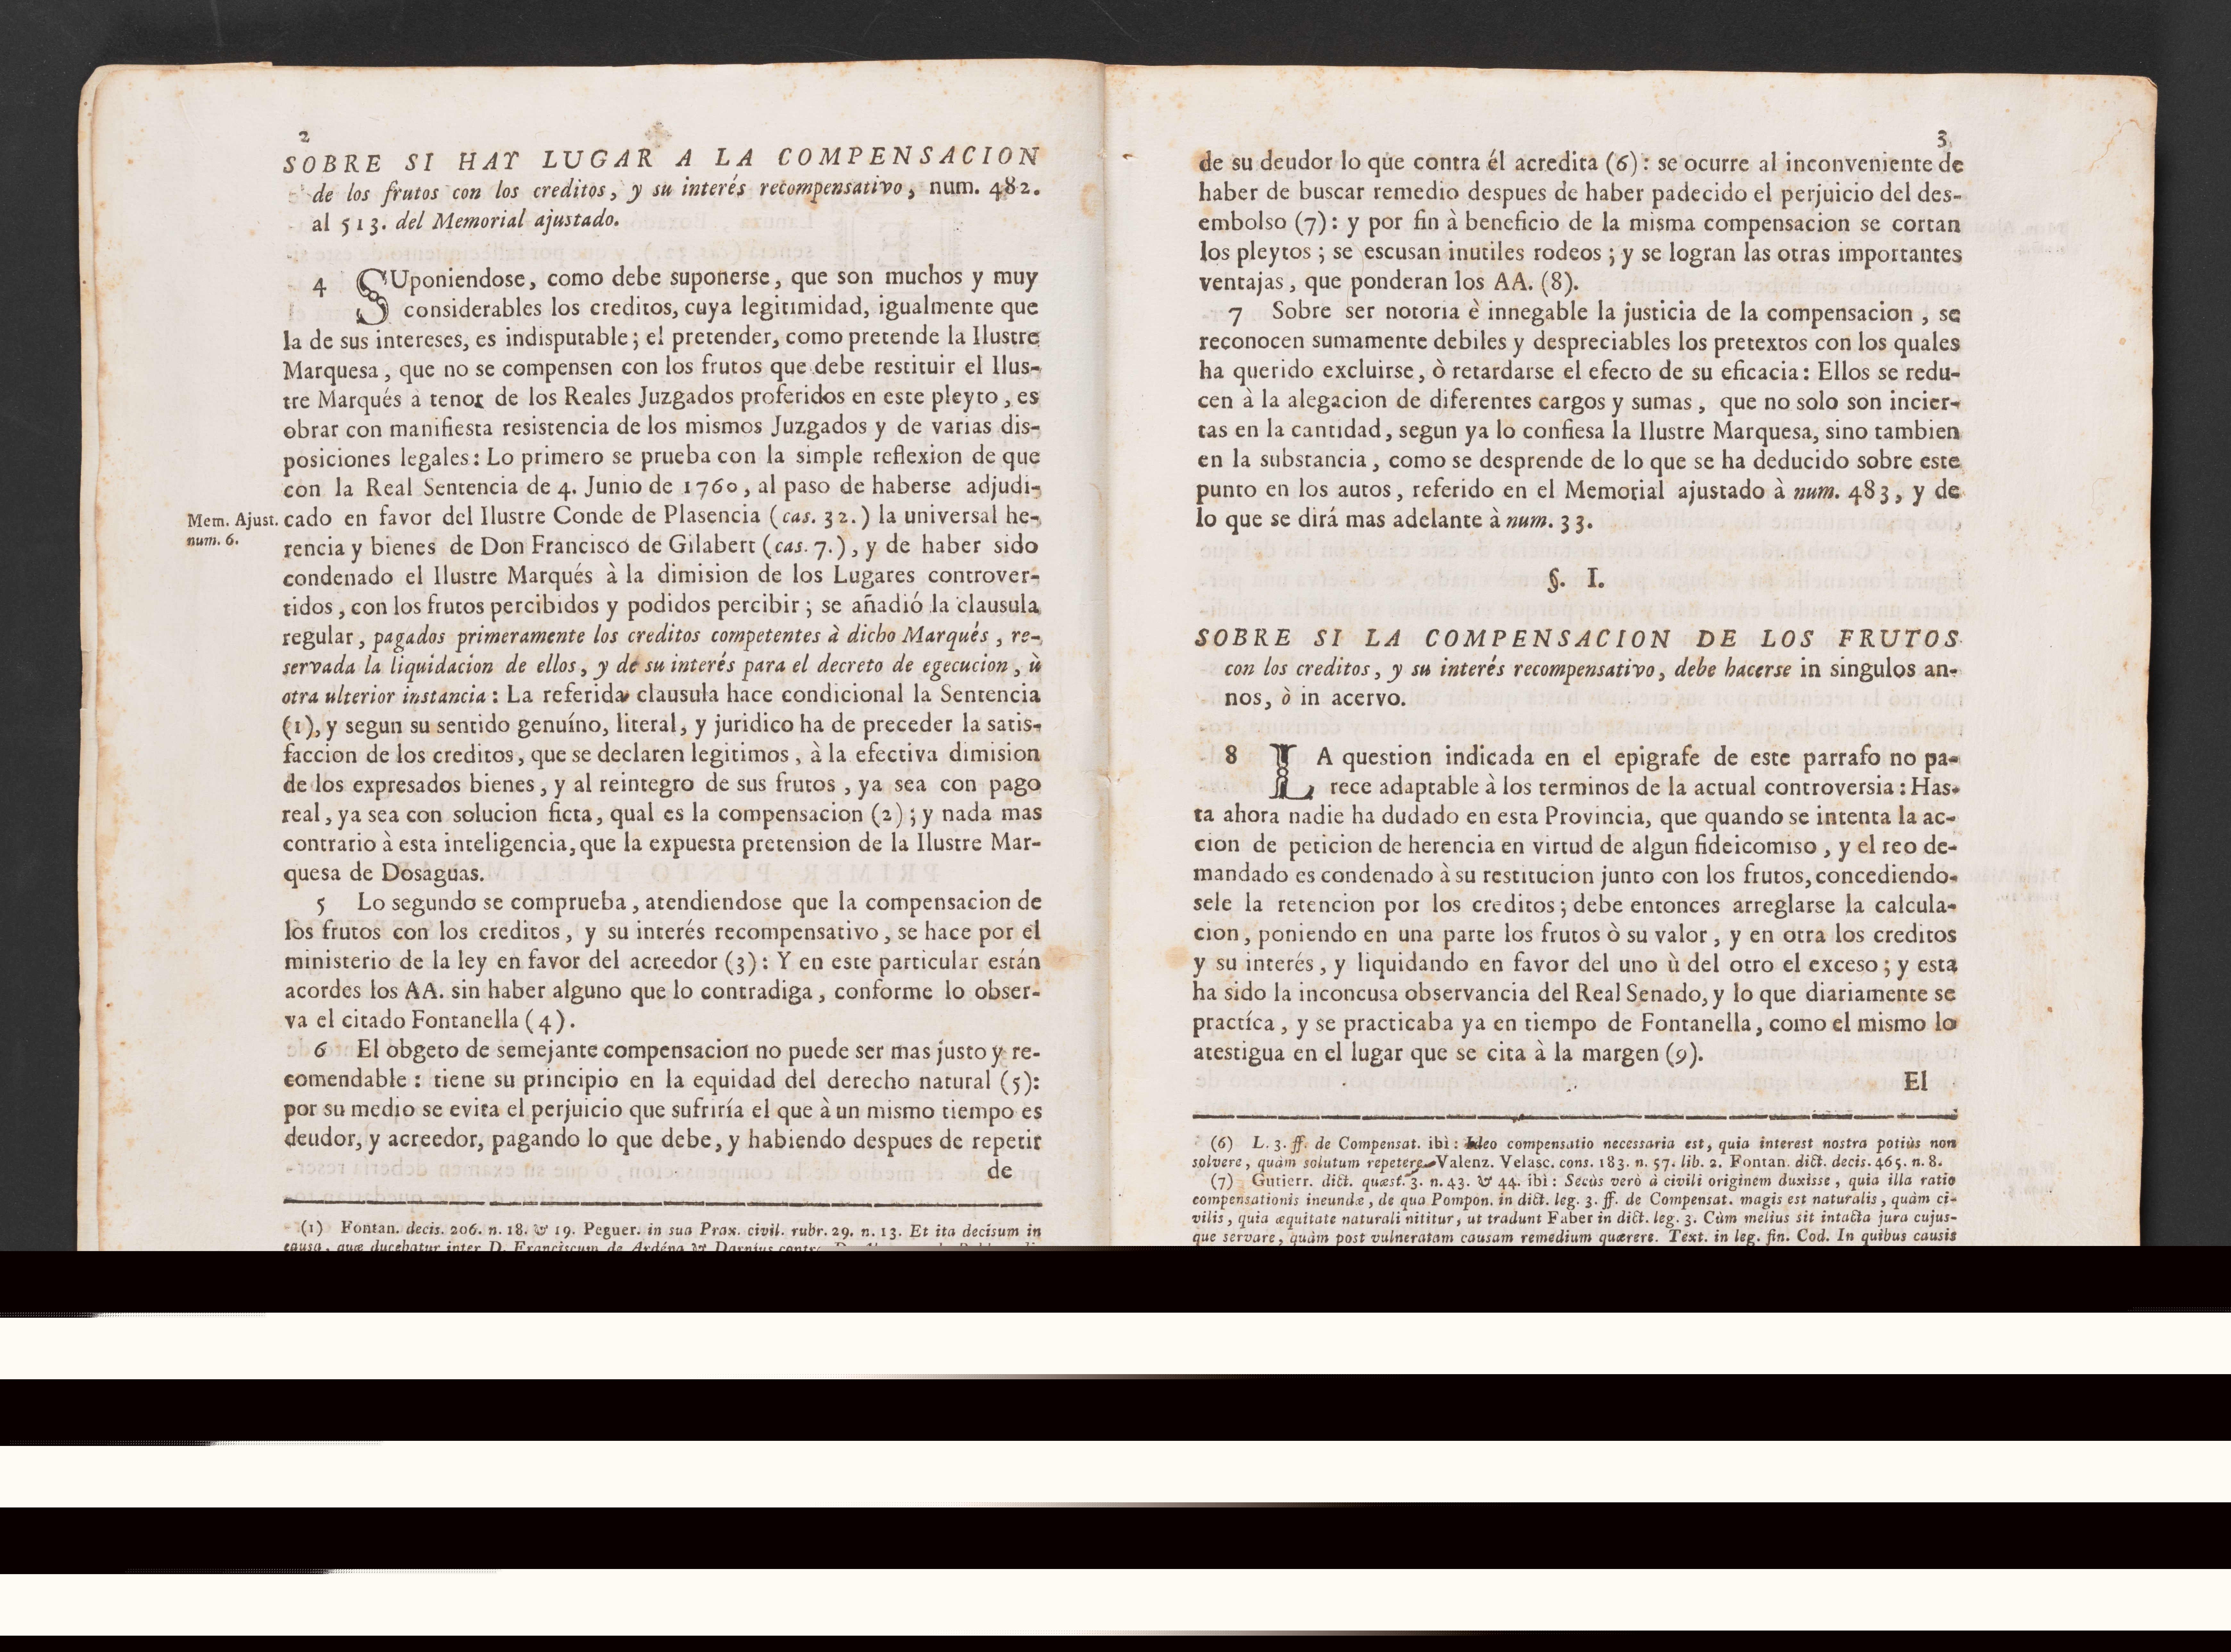 2
SOBRE SI HAY LUGAR A LA COMPENSACION
de los frutos con los creditos, y su interés recompensativo, num. 482.
al 513. del Memorial ajustado.
4 SUponiendose, como debe suponerse, que son muchos y muy
considerables los creditos, cuya legitimidad, igualmente que
la de sus intereses, es indisputable; el pretender, como pretende la Ilustre
Marquesa, que no se compensen con los frutos que debe restituir el Ilus-
tre Marqués à tenor de los Reales Juzgados proferidos en este pleyto, es
obrar con manifiesta resistencia de los mismos Juzgados y de varias dis-
posiciones legales: Lo primero se prueba con la simple reflexion de que
con la Real Sentencia de 4. Junio de 1760, al paso de haberse adjudi-
Mem. Ajust.
num. 6.
cado en favor del Ilustre Conde de Plasencia (cas. 32.) la universal he-
rencia y bienes de Don Francisco de Gilabert (cas. 7.), y de haber sido
condenado el Ilustre Marqués à la dimision de los Lugares controver-
tidos, con los frutos percibidos y podidos percibir; se añadió la clausula
regular, pagados primeramente los creditos competentes à dicho Marqués, re-
servada la liquidacion de ellos, y de su interés para el decreto de egecucion, ù
otra ulterior instancia: La referida clausula hace condicional la Sentencia
(1), y segun su sentido genuíno, literal, y juridico ha de preceder la satis-
faccion de los creditos, que se declaren legitimos, à la efectiva dimision
de los expresados bienes, y al reintegro de sus frutos, ya sea con pago
real, ya sea con solucion ficta, qual es la compensacion (2); y nada mas
contrario à esta inteligencia, que la expuesta pretension de la Ilustre Mar-
quesa de Dosaguas.
5 Lo segundo se comprueba, atendiendose que la compensacion de
los frutos con los creditos, y su interés recompensativo, se hace por el
ministerio de la ley en favor del acreedor (3): Y en este particular están
acordes los AA. sin haber alguno que lo contradiga, conforme lo obser-
va el citado Fontanella (4).
6 El obgeto de semejante compensacion no puede ser mas justo y re-
comendable: tiene su principio en la equidad del derecho natural (5):
por su medio se evita el perjuicio que sufriría el que à un mismo tiempo es
deudor, y acreedor, pagando lo que debe, y habiendo despues de repetir
de
(1) Fontan. decis. 206. n. 18. & 19. Peguer. in sua Prax. civil. rubr. 29. n. 13. Et ita decisum in
causa, quæ ducebatur inter D. Franciscum de Ardéna & Darnius
3
de su deudor lo que contra él acredita (6): se ocurre al inconveniente de
haber de buscar remedio despues de haber padecido el perjuicio del des-
embolso (7): y por fin à beneficio de la misma compensacion se cortan
los pleytos; se escusan inutiles rodeos; y se logran las otras importantes
ventajas, que ponderan los AA. (8).
7 Sobre ser notoria è innegable la justicia de la compensacion, se
reconocen sumamente debiles y despreciables los pretextos con los quales
ha querido excluirse, ò retardarse el efecto de su eficacia: Ellos se redu-
cen à la alegacion de diferentes cargos y sumas, que no solo son incier-
tas en la cantidad, segun ya lo confiesa la Ilustre Marquesa, sino tambien
en la substancia, como se desprende de lo que se ha deducido sobre este
punto en los autos, referido en el Memorial ajustado à num. 483, y de
lo que se dirá mas adelante à num. 33.
§. I.
SOBRE SI LA COMPENSACION DE LOS FRUTOS
con los creditos, y su interés recompensativo, debe hacerse in singulos an-
nos, ò in acervo.
8 LA question indicada en el epigrafe de este parrafo no pa-
rece adaptable à los terminos de la actual controversia: Has-
ta ahora nadie ha dudado en esta Provincia, que quando se intenta la ac-
cion de peticion de herencia en virtud de algun fideicomiso, y el reo de-
mandado es condenado à su restitucion junto con los frutos, concediendo-
sele la retencion por los creditos; debe entonces arreglarse la calcula-
cion, poniendo en una parte los frutos ò su valor, y en otra los creditos
y su interés, y liquidando en favor del uno ù del otro el exceso; y esta
ha sido la inconcusa observancia del Real Senado, y lo que diariamente se
practíca, y se practicaba ya en tiempo de Fontanella, como el mismo lo
atestigua en el lugar que se cita à la margen (9).
El
(6) L. 3. ff. de Compensat. ibì: Ideo compensatio necessaria est, quia interest nostra potiùs non
solvere, quàm solutum repetere. Valenz. Velasc. cons. 183. n. 57. lib. 2. Fontan. dict. decis. 465. n. 8.
(7) Gutierr. dict. quæst. 3. n. 43. & 44. ibì: Secùs verò à civili originem duxisse, quia illa ratio
compensationis ineundæ, de qua Pompon. in dict. leg. 3. ff. de Compensat. magis est naturalis, quàm ci-
vilis, quia æquitate naturali nititur, ut tradunt Faber in dict. leg. 3. Cùm melius sit intacta jura cujus-
que servare, quàm post vulneratam causam remedium quærere. Text. in leg. fin. Cod. In quibus causis